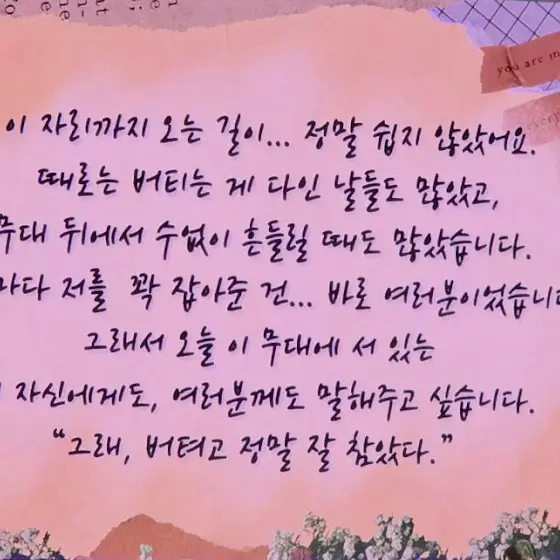 you are in
이 자리까지 오는 길이... 정말 쉽지 않았어요.
때로는 버티는 게 다인 날들도 많았고,
무대 뒤에서 수없이 흔들릴 때도 많았습니다.
마다 저를 꽉 잡아준 건... 바로 여러분이었습니다
그래서 오늘 이 무대에 서 있는
자신에게도, 여러분께도 말해주고 싶습니다.
“그래, 버텨고 정말 잘 참았다.”